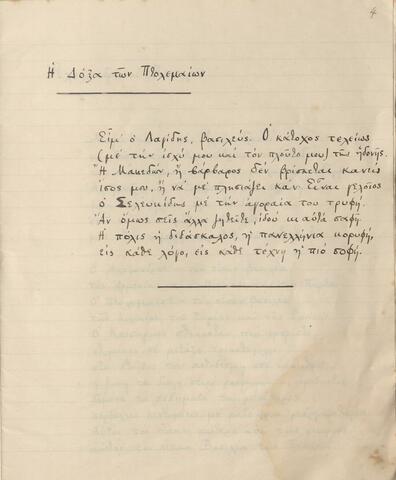 4
Η Δόξα των Πτολεμαίων
Είμ' ο Λαγίδης, βασιλεύς. Ο κάτοχος τελείως
(με την ισχύ μου και τον πλούτο μου) της ηδονής.
Ή Μακεδών, ή βάρβαρος δεν βρίσκεται κανείς
ίσος μου, ή να με πλησιάζει καν. Είναι γελοίος
ο Σελευκίδης με την αγοραία του τρυφή.
Αν όμως σεις άλλα ζητείτε, ιδού κι αυτά σαφή.
Η πόλις η διδάσκαλος, η πανελλήνια κορυφή,
εις κάθε λόγο, εις κάθε τέχνη η πιο σοφή.